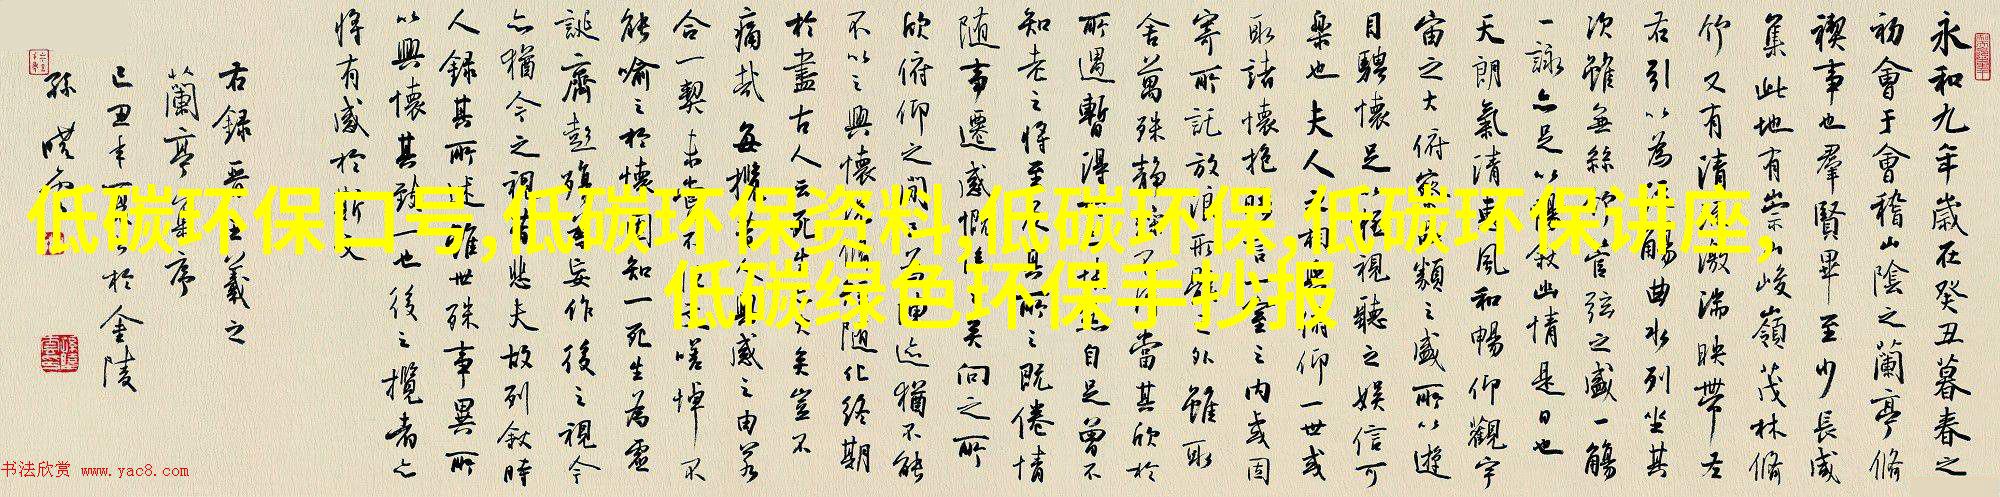 低碳环保口号,低碳环保资料,低碳环保,低碳环保讲座,
低碳绿色环保手抄报
永和九年歲在癸丑暮春之
初會于會稽山陰之蘭亭脩
禊事也羣賢畢至少長咸
集此地有崇山峻嶺茂林脩
竹又有清流激湍映帶左
右引以為流觴曲水列坐其
次雖無絲竹管弦之盛一觴
一詠亦足以暢叙幽情是日也
天朗氣清惠風和暢仰觀宇
宙之大俯察品類之盛所以遊
目騁懷足以極視聽之娛信可
樂也夫人之相與俯仰一世或
取諸懷抱悟言一室之内或因
寄所託放浪形骸之外雖取
舍萬殊静躁不同當其欣於
所遇暫得於己快然自足曾不
知老之將至及其所之既倦情
随事遷感慨係之矣向之所
欣俯仰之間已為陳迹猶不能
不以之興懷況脩短随化終期
於盡古人云死生亦大矣豈不
痛哉每攬昔人興感之由若
合一契未嘗不臨文嗟悼不
能喻之於懷固知一死生為虚
誕齊彭殤為妄作後之視今
亦猶今之視昔悲夫故列叙時
人録其所述雖世殊事異所
以興懷其致一也後之攬者亦
將有感於斯文
右録晉王羲之
蘭亭集序
己丑年於金陵
孫曉雲
书法欣赏 www.yac8.com